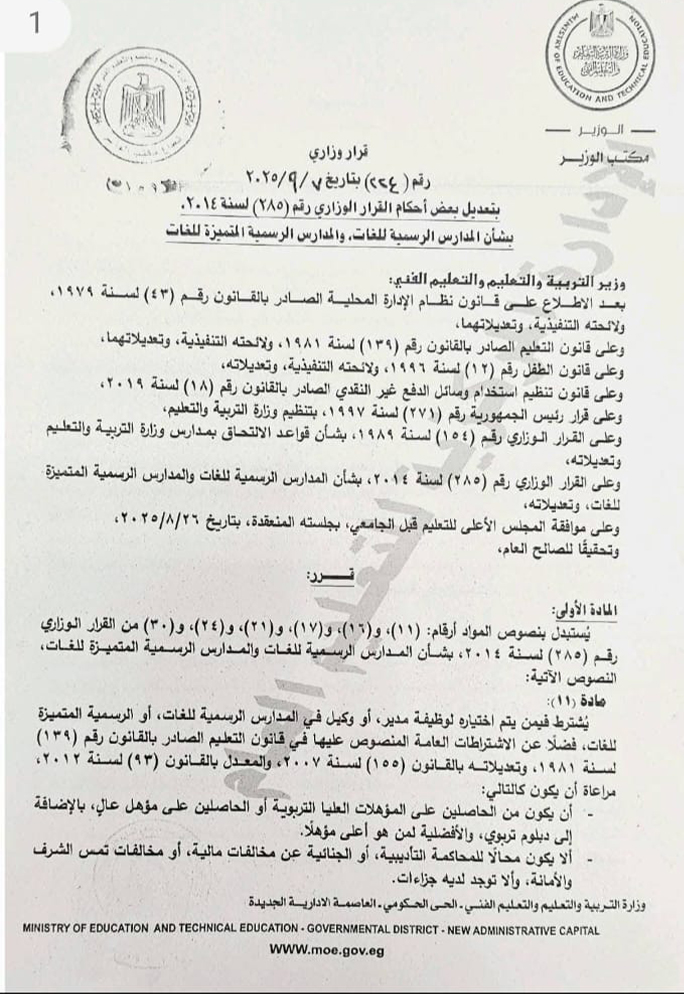 1
MINISTRY OF EDUCATION AND TECHNICAL EDUCATION
وزارة التربية والتعليم
والتعليم الفني
الـوزيـر
مكتب الوزير
قرار وزاري
رقم (٢٢٤) بتاريخ ٢٠٢٥/٩/٧
بتعديل بعض أحكام القرار الوزاري رقم (٢٨٥) لسنة ٢٠١٤،
بشأن المدارس الرسمية للغات، والمدارس الرسمية المتميزة للغات
وزير التربية والتعليم والتعليم الفني:
بعد الاطلاع على قانون نظام الإدارة المحلية الصادر بالقانون رقم (٤٣) لسنة ١٩٧٩،
ولائحته التنفيذية، وتعديلاتهما،
وعلى قانون التعليم الصادر بالقانون رقم (١٣٩) لسنة ١٩٨١، ولائحته التنفيذية، وتعديلاتهما،
وعلى قانون الطفل رقم (١٢) لسنة ١٩٩٦، ولائحته التنفيذية، وتعديلاته،
وعلى قانون تنظيم استخدام وسائل الدفع غير النقدي الصادر بالقانون رقم (١٨) لسنة ٢٠١٩،
وعلى قرار رئيس الجمهورية رقم (٢٧١) لسنة ١٩٩٧، بتنظيم وزارة التربية والتعليم،
وعلى القرار الوزاري رقم (١٥٤) لسنة ١٩٨٩، بشأن قواعد الالتحاق بمدارس وزارة التربية والتعليم
وتعديلاته،
وعلى القرار الوزاري رقم (٢٨٥) لسنة ٢٠١٤، بشأن المدارس الرسمية للغات والمدارس الرسمية المتميزة
للغات، وتعديلاته،
وعلى موافقة المجلس الأعلى للتعليم قبل الجامعي، بجلسته المنعقدة، بتاريخ ٢٠٢٥/٨/٢٦،
وتحقيقًا للصالح العام،
قــــرر:
المادة الأولى:
يُستبدل بنصوص المواد أرقام: (١١)، و(١٦)، و(١٧)، و(٢١)، و(٢٤)، و(٣٠) من القرار الوزاري
رقم (٢٨٥) لسنة ٢٠١٤، بشأن المدارس الرسمية للغات والمدارس الرسمية المتميزة للغات،
النصوص الآتية:
مادة (١١):
يُشترط فيمن يتم اختياره لوظيفة مدير، أو وكيل في المدارس الرسمية للغات، أو الرسمية المتميزة
للغات، فضلًا عن الاشتراطات العامة المنصوص عليها في قانون التعليم الصادر بالقانون رقم (١٣٩)
لسنة ١٩٨١، وتعديلاته بالقانون (١٥٥) لسنة ٢٠٠٧، والمعدل بالقانون (٩٣) لسنة ٢٠١٢،
مراعاة أن يكون كالتالي:
- أن يكون من الحاصلين على المؤهلات العليا التربوية أو الحاصلين على مؤهل عالٍ، بالإضافة
إلى دبلوم تربوي، والأفضلية لمن هو أعلى مؤهلًا.
- ألا يكون محالًا للمحاكمة التأديبية، أو الجنائية عن مخالفات مالية، أو مخالفات تمس الشرف
والأمانة، وألا توجد لديه جزاءات.
وزارة التربية والتعليم والتعليم الفني - الحى الحكومي - العاصمة الادارية الجديدة
MINISTRY OF EDUCATION AND TECHNICAL EDUCATION - GOVERNMENTAL DISTRICT - NEW ADMINISTRATIVE CAPITAL
WWW.moe.gov.eg